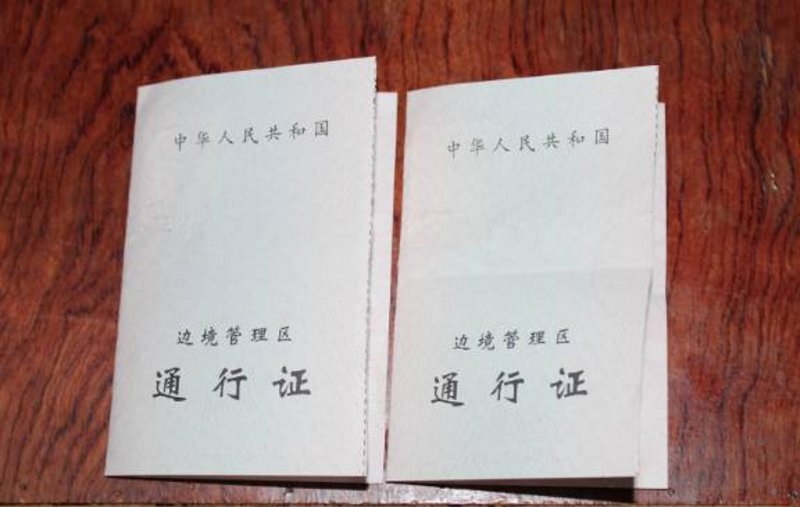 中华人民共和国
边境管理区
通行证
中华人民共和国
边境管理区
通行证